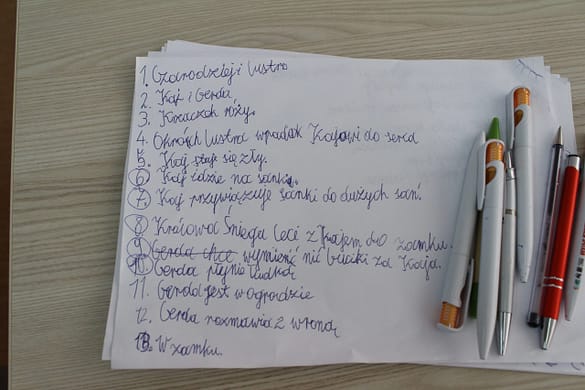 1. Czarodziej i lustro
2. Kaj i Gerda
3. Krzaczek róży.
4. Okruch lustra wpadak Kajowi do serca
5. Kaj staje się zły.
6. Kaj idzie na sanki.
7. Kaj przywiązuje sanki do dużych sań.
8. Królowa Śniega leci z Kajem do zamku.
9. Gerda chce wymienić nić buciki za Kaja.
10. Gerda płynie łódką
11. Gerda jest w ogrodzie
12. Gerda rozmawia z wroną
13. W zamku.